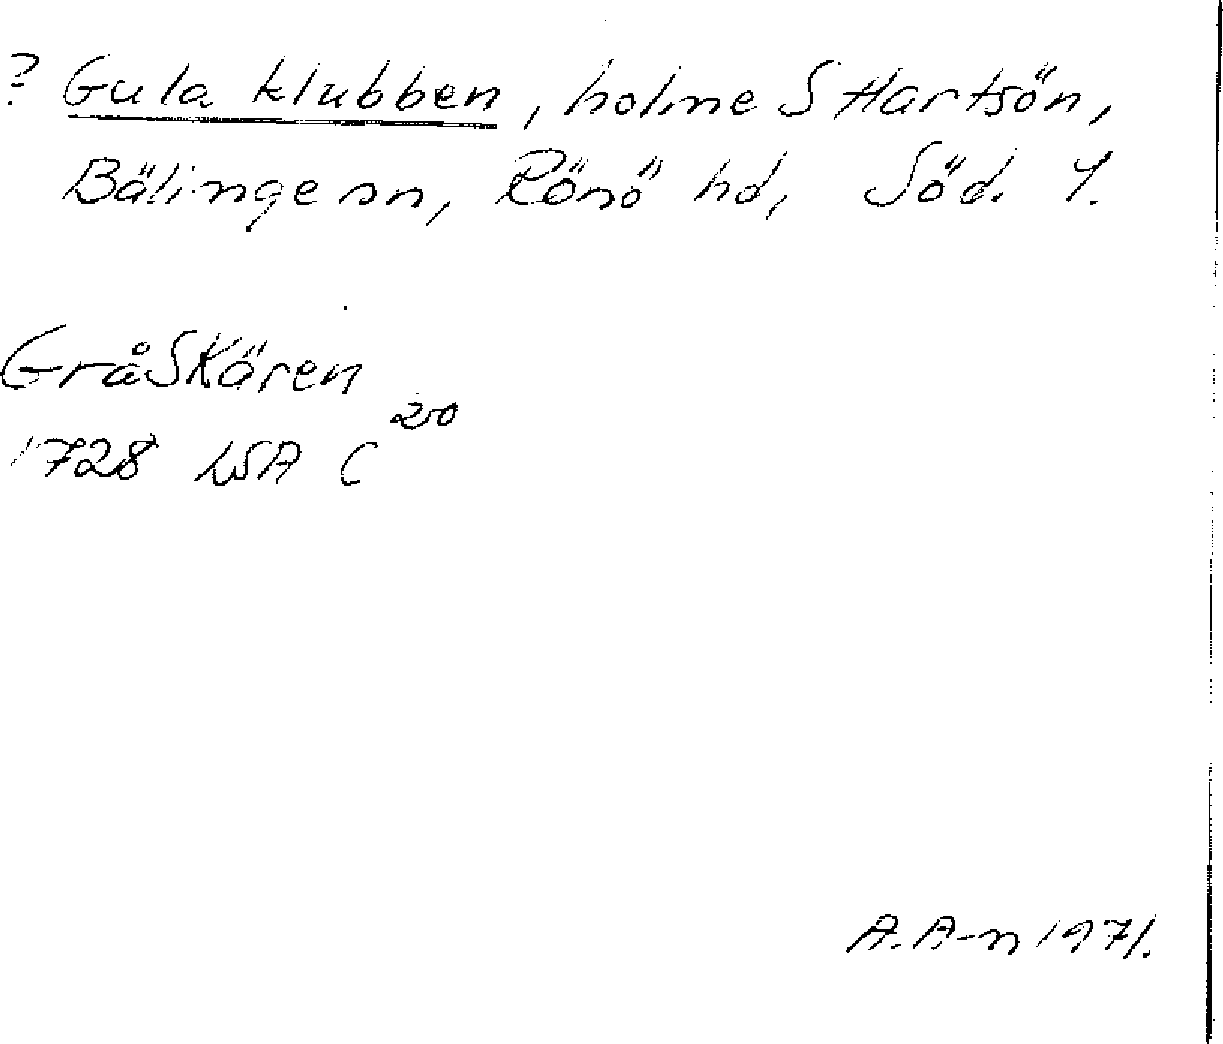 ? Gula klubben, holme S Hartsön,
Bälinge sn, Rönö hd, Söd. l.
Gråskären
1728 LSA C 20
A. A-n 1971.